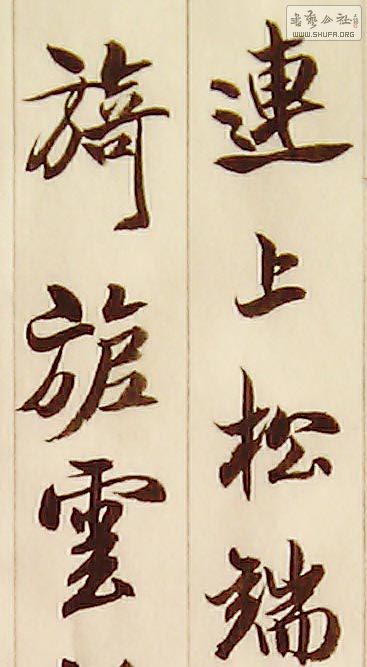 連上松端
旖旎雲
書藝公社
WWW.SHUFA.ORG